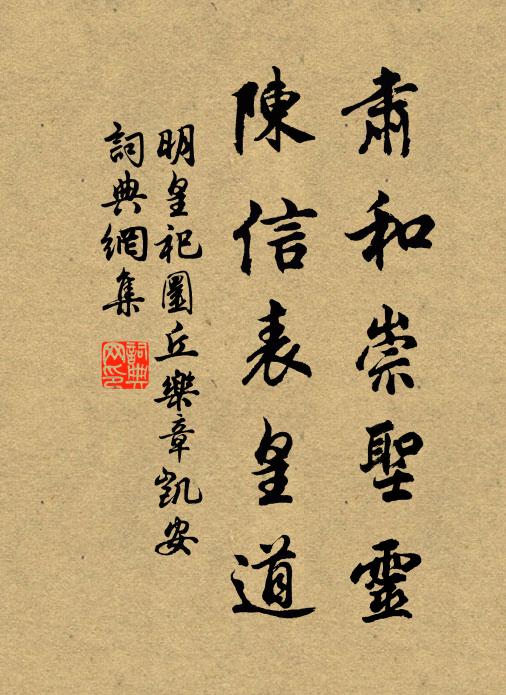 肅和崇聖靈
陳信表皇道
明皇祀圜丘樂章凱安
詞典網集
詞典网印